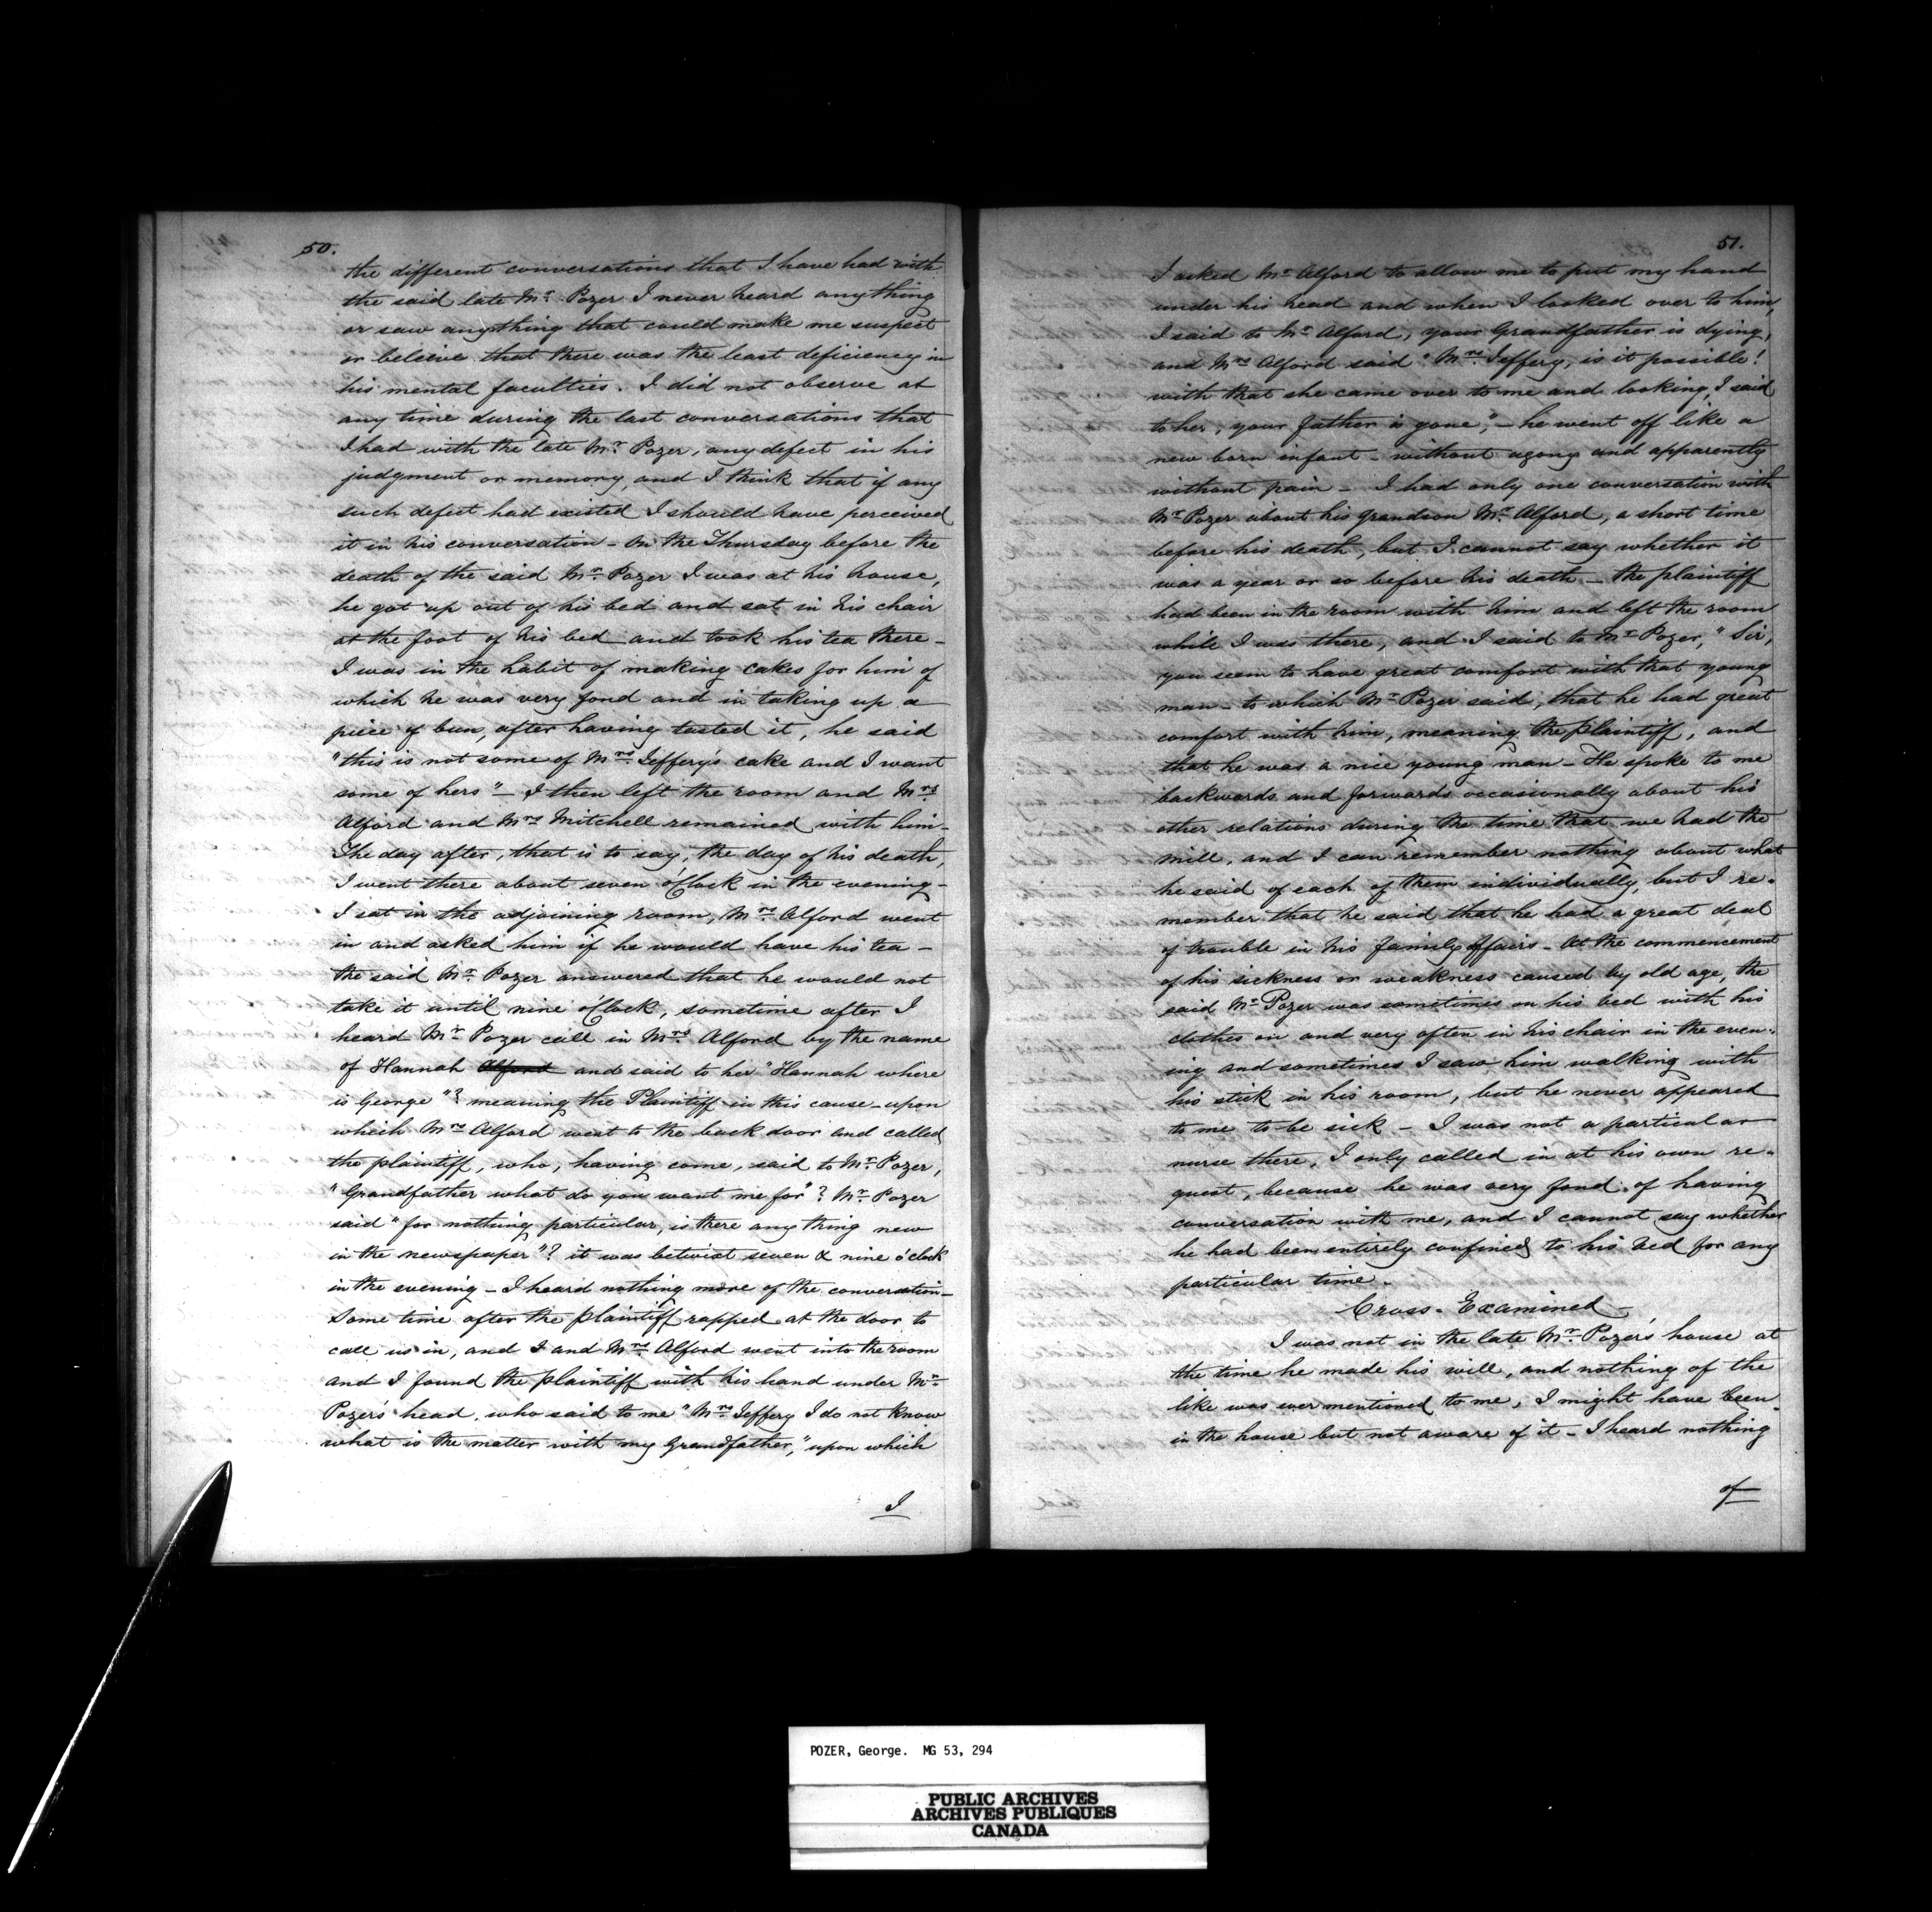 50.
the different conversations that I have had with
the said late Mr. Pozer I never heard anything
or saw anything that could make me suspect
or beleive that there was the least deficiency in
his mental faculties. I did not observe at
any time during the last conversations that
I had with the late Mr. Pozer, any defect in his
judgment or memory, and I think that if any
such defect had existed I should have perceived
it in his conversation - On the Thursday before the
death of the said Mr. Pozer I was at his house,
he got up out of his bed and sat in his chair
at the foot of his bed and took his tea there -
I was in the habit of making cakes for him of
which he was very fond and in taking up a
piece of bun, after having tasted it, he said
"this is not some of Mrs. Jeffery's cake and I want
some of hers" - I then left the room and Mrs.
Alford and Mrs Mitchell remained with him -
The day after, that is to say, the day of his death,
I went there about seven o'Clock in the evening -
I sat in the adjoining room, Mrs. Alford went
in and asked him if he would have his tea -
the said Mr. Pozer answered that he would not
take it until nine o'Clock, sometime after I
heard Mr. Pozer call in Mrs. Alford by the name
of Hannah Alford and said to her "Hannah where
is George"? meaning the Plaintiff in this cause - upon
which Mrs. Alford went to the back door and called
the plaintiff, who, having come, said to Mr. Pozer,
"Grandfather what do you want me for"? Mr. Pozer
said "for nothing particular, is there any thing new
in the newspaper"? it was betwixt seven & nine o'clock
in the evening - I heard nothing more of the conversation -
Some time after the plaintiff rapped at the door to
call us in, and I and Mrs. Alford went into the room
and I found the plaintiff with his hand under Mr.
Pozer's head, who said to me "Mrs. Jeffery I do not know
what is the matter with my Grandfather," upon which
I
51.
I asked Mr. Alford to allow me to put my hand
under his head and when I looked over to him,
I said to Mr. Alford, your Grandfather is dying,
and Mrs Alford said "Mrs. Jeffery, is it possible!
with that she came over to me and looking, I said
to her, your father is gone", - he went off like a
new born infant - without agony and apparently
without pain - I had only one conversation with
Mr. Pozer about his grandson Mr. Alford, a short time
before his death, but I cannot say whether it
was a year or so before his death - the plaintiff
had been in the room with him and left the room
while I was there, and I said to Mr. Pozer, "Sir,
you seem to have great comfort with that young
man - to which Mr. Pozer said, that he had great
comfort with him, meaning the plaintiff, and
that he was a nice young man - He spoke to me
backwards and forwards occasionally about his
other relations during the time that we had the
mill, and I can remember nothing about what
he said of each of them individually, but I re-
member that he said that he had a great deal
of trouble in his family affairs - At the commencement
of his sickness or weakness caused by old age, the
said Mr. Pozer was sometimes on his bed with his
clothes on and very often in his chair in the even-
ing and sometimes I saw him walking with
his stick in his room, but he never appeared
to me to be sick - I was not a particular
nurse there, I only called in at his own re-
quest, because he was very fond of having
conversation with me, and I cannot say whether
he had been entirely confined to his bed for any
particular time.
Cross-Examined -
I was not in the late Mr. Pozer's house at
the time he made his will, and nothing of the
like was ever mentioned to me, I might have been
in the house but not aware of it - I heard nothing
of
POZER, George. MG 53, 294
PUBLIC ARCHIVES
ARCHIVES PUBLIQUES
CANADA